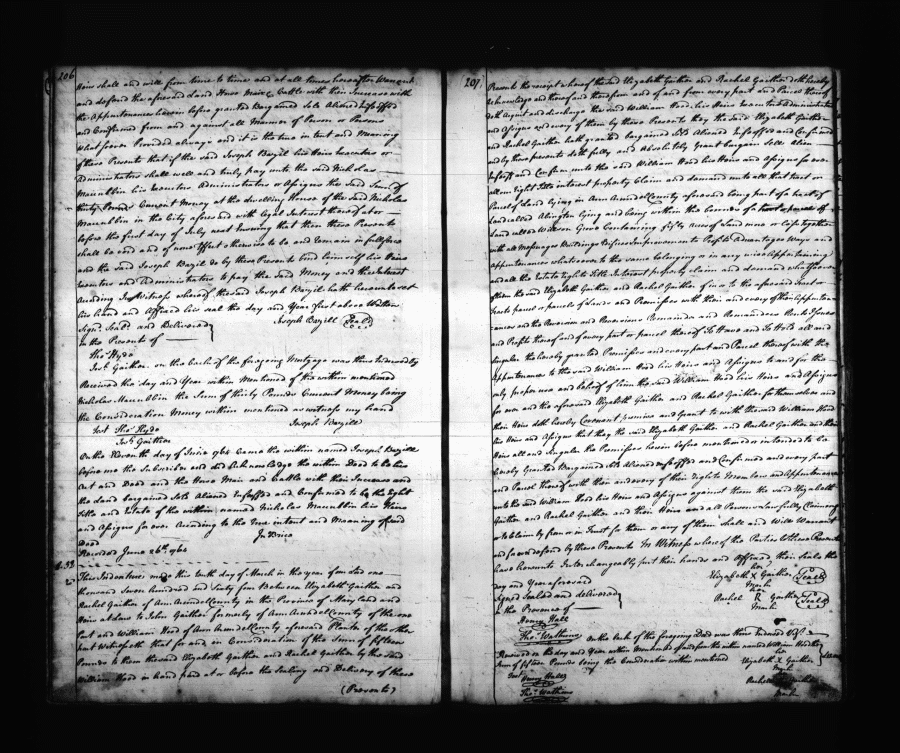 206
Heirs shall and will from time to time and at all times hereafter Warrant
and defend the aforesaid Land Horse Mair & Cattle with their Increase with
the Appurtenances herein before granted Bargained Sold Aliened Infeoffed
and Confirmed from and against all Manner of Person or Persons
whatsoever Provided always and it is the true intent and Meaning
of these Presents that if the said Joseph Bazil his Heirs Executors or
Administrators shall well and truly pay unto the said Nicholas
Maccubbin his Executors Administrators or Assigns the said Sum of
thirty Pounds Current Money at the dwelling House of the said Nicholas
Maccubbin in the City aforesaid with Legal Interest thereof at or
before the first day of July next Ensuing that then these Presents
shall be void and of none Effect otherwise to be and Remain in full force
and the said Joseph Bazil do by these Presents bind himself his Heirs
Executors and Administrators to pay the said Money and the Interest
According In Witness whereof the said Joseph Bazil hath hereunto set
his hand and Affixed his seal the day and Year first above Written
Signed Seald and Delivered
Joseph Bazill Seal
in the Presents of
Thos Hyde
Jos. Gaither. on the back of the foregoing Mortgage was thus Indorsed by
Received the day and Year within Mentioned of the within mentioned
Nicholas Maccubbin the Sum of thirty Pounds Current Money being
the Consideration Money within mentioned as witness my hand
Test Thos Hyde
Joseph Bazill
Jos. Gaither
On the Eleventh day of June 1764 Came the within named Joseph Bazill
before me the Subscriber and did Acknowledge the within Deed to be his
Act and Deed and the Horse Mair and Cattle with their Increase and
the Land bargained Sold Aliened Infeoffed and Confirmed to be the Right
Title and Estate of the within named Nicholas Maccubbin his Heirs
and Assigns for ever According to the true intent and Meaning of said
Deed
Jn Brice
Recorded June 26th 1764
This Indenture made this tenth day of March in the year of our Lord one
thousand Seven Hundred and Sixty four Between Elizabeth Gaither and
Rachel Gaither of Ann Arundel County in the Province of Maryland and
Heirs at Law to John Gaither formerly of Ann Arundel County of the one
Part and William Hood of Ann Arundel County aforesaid Planter of the other
part Witnesseth that for and in Consideration of the Sum of fifteen
Pounds to them the said Elizabeth Gaither and Rachel Gaither by the said
William Hood in hand paid at or before the Sealing and Delivery of these
(Presents)
207
Presents the receipt whereof the said Elizabeth Gaither and Rachel Gaither doth hereby
Acknowledge and thereof and therefrom and of and from every part and Parcel thereof
doth Acquit and discharge the said William Hood his Heirs Executors Administrators
and Assigns and every of them by these Presents they the said Elizabeth Gaither
and Rachel Gaither hath granted bargained Sold Aliened Infeoffed and Confirmed
and by these presents doth fully and Absolutely Grant bargain Sell Alien
Infeoff and Confirm unto the said William Hood his Heirs and Assigns for ever
all our right Title interest property Claim and demand unto all that tract or
Parcel of Land lying in Ann Arundel County aforesaid being part of a tract of
Land called Abington lying and being within the
Land called Wilson Grove Containing fifty acres of Land more or less together
with all Messuages Buildings Edifices Improvements Profits Advantages Ways and
Appurtenances whatsoever to the same belonging or in any wise Appertaining
and all the Estate right Title Interest property claim and demand whatsoever
of them the said Elizabeth Gaither and Rachel Gaither of in or to the aforesaid Tract or
Tracts parcel or parcels of Land and Premisses with their and every of their Appurten
ances and the Reversion and Reversions Remainder and Remainders Rents Issues
and Profits thereof and of every part or parcel thereof To Have and To Hold all and
Singular the hereby granted Premisses and every part and Parcel thereof with the
Appurtenances to the said William Hood his Heirs and Assigns to and for the
only proper use and behoof of him the said William Hood his Heirs and Assigns
for ever and the aforesaid Elizabeth Gaither and Rachel Gaither for themselves and
their Heirs doth hereby Covenant promise and Grant to with the said William Hood
his Heirs and Assigns that they the said Elizabeth Gaither and Rachel Gaither and their
Heirs all and Singular the Premisses herein before mentioned or intended to be
hereby Granted Bargained Sold Aliened Infeoffed and Confirmed and every part
and Parcel thereof with their and every of their rights Members and Appurtenances
unto the said William Hood his Heirs and Assigns against them the said Elizabeth
Gaither and Rachel Gaither and their Heirs and all Persons Lawfully Claiming
or to Claim by from or in Trust for them or any of them shall and Will Warrant
and for ever defend by these Presents In Witness whereof the Parties to these Presents
have hereunto Interchangeably put their hands and Affixed their Seals the
day and Year aforesaid
her
Elizabeth X Gaither Seal
Mark
Signed Sealed and delivered
her
Rachel R Gaither Seal
Mark
in the Presence of
Henry Hall
Thos Watkins on the back of the foregoing Deed was thus Indorsed Viz.
Received on the day and Year within Mentioned of and from the within named William Hood the
Sum of fifteen Pounds being the Consideration within mentioned
her
Elizabeth X Gaither
Mark
Test
Henry Hall
Thos Watkins
Rachel Gaither
Mark